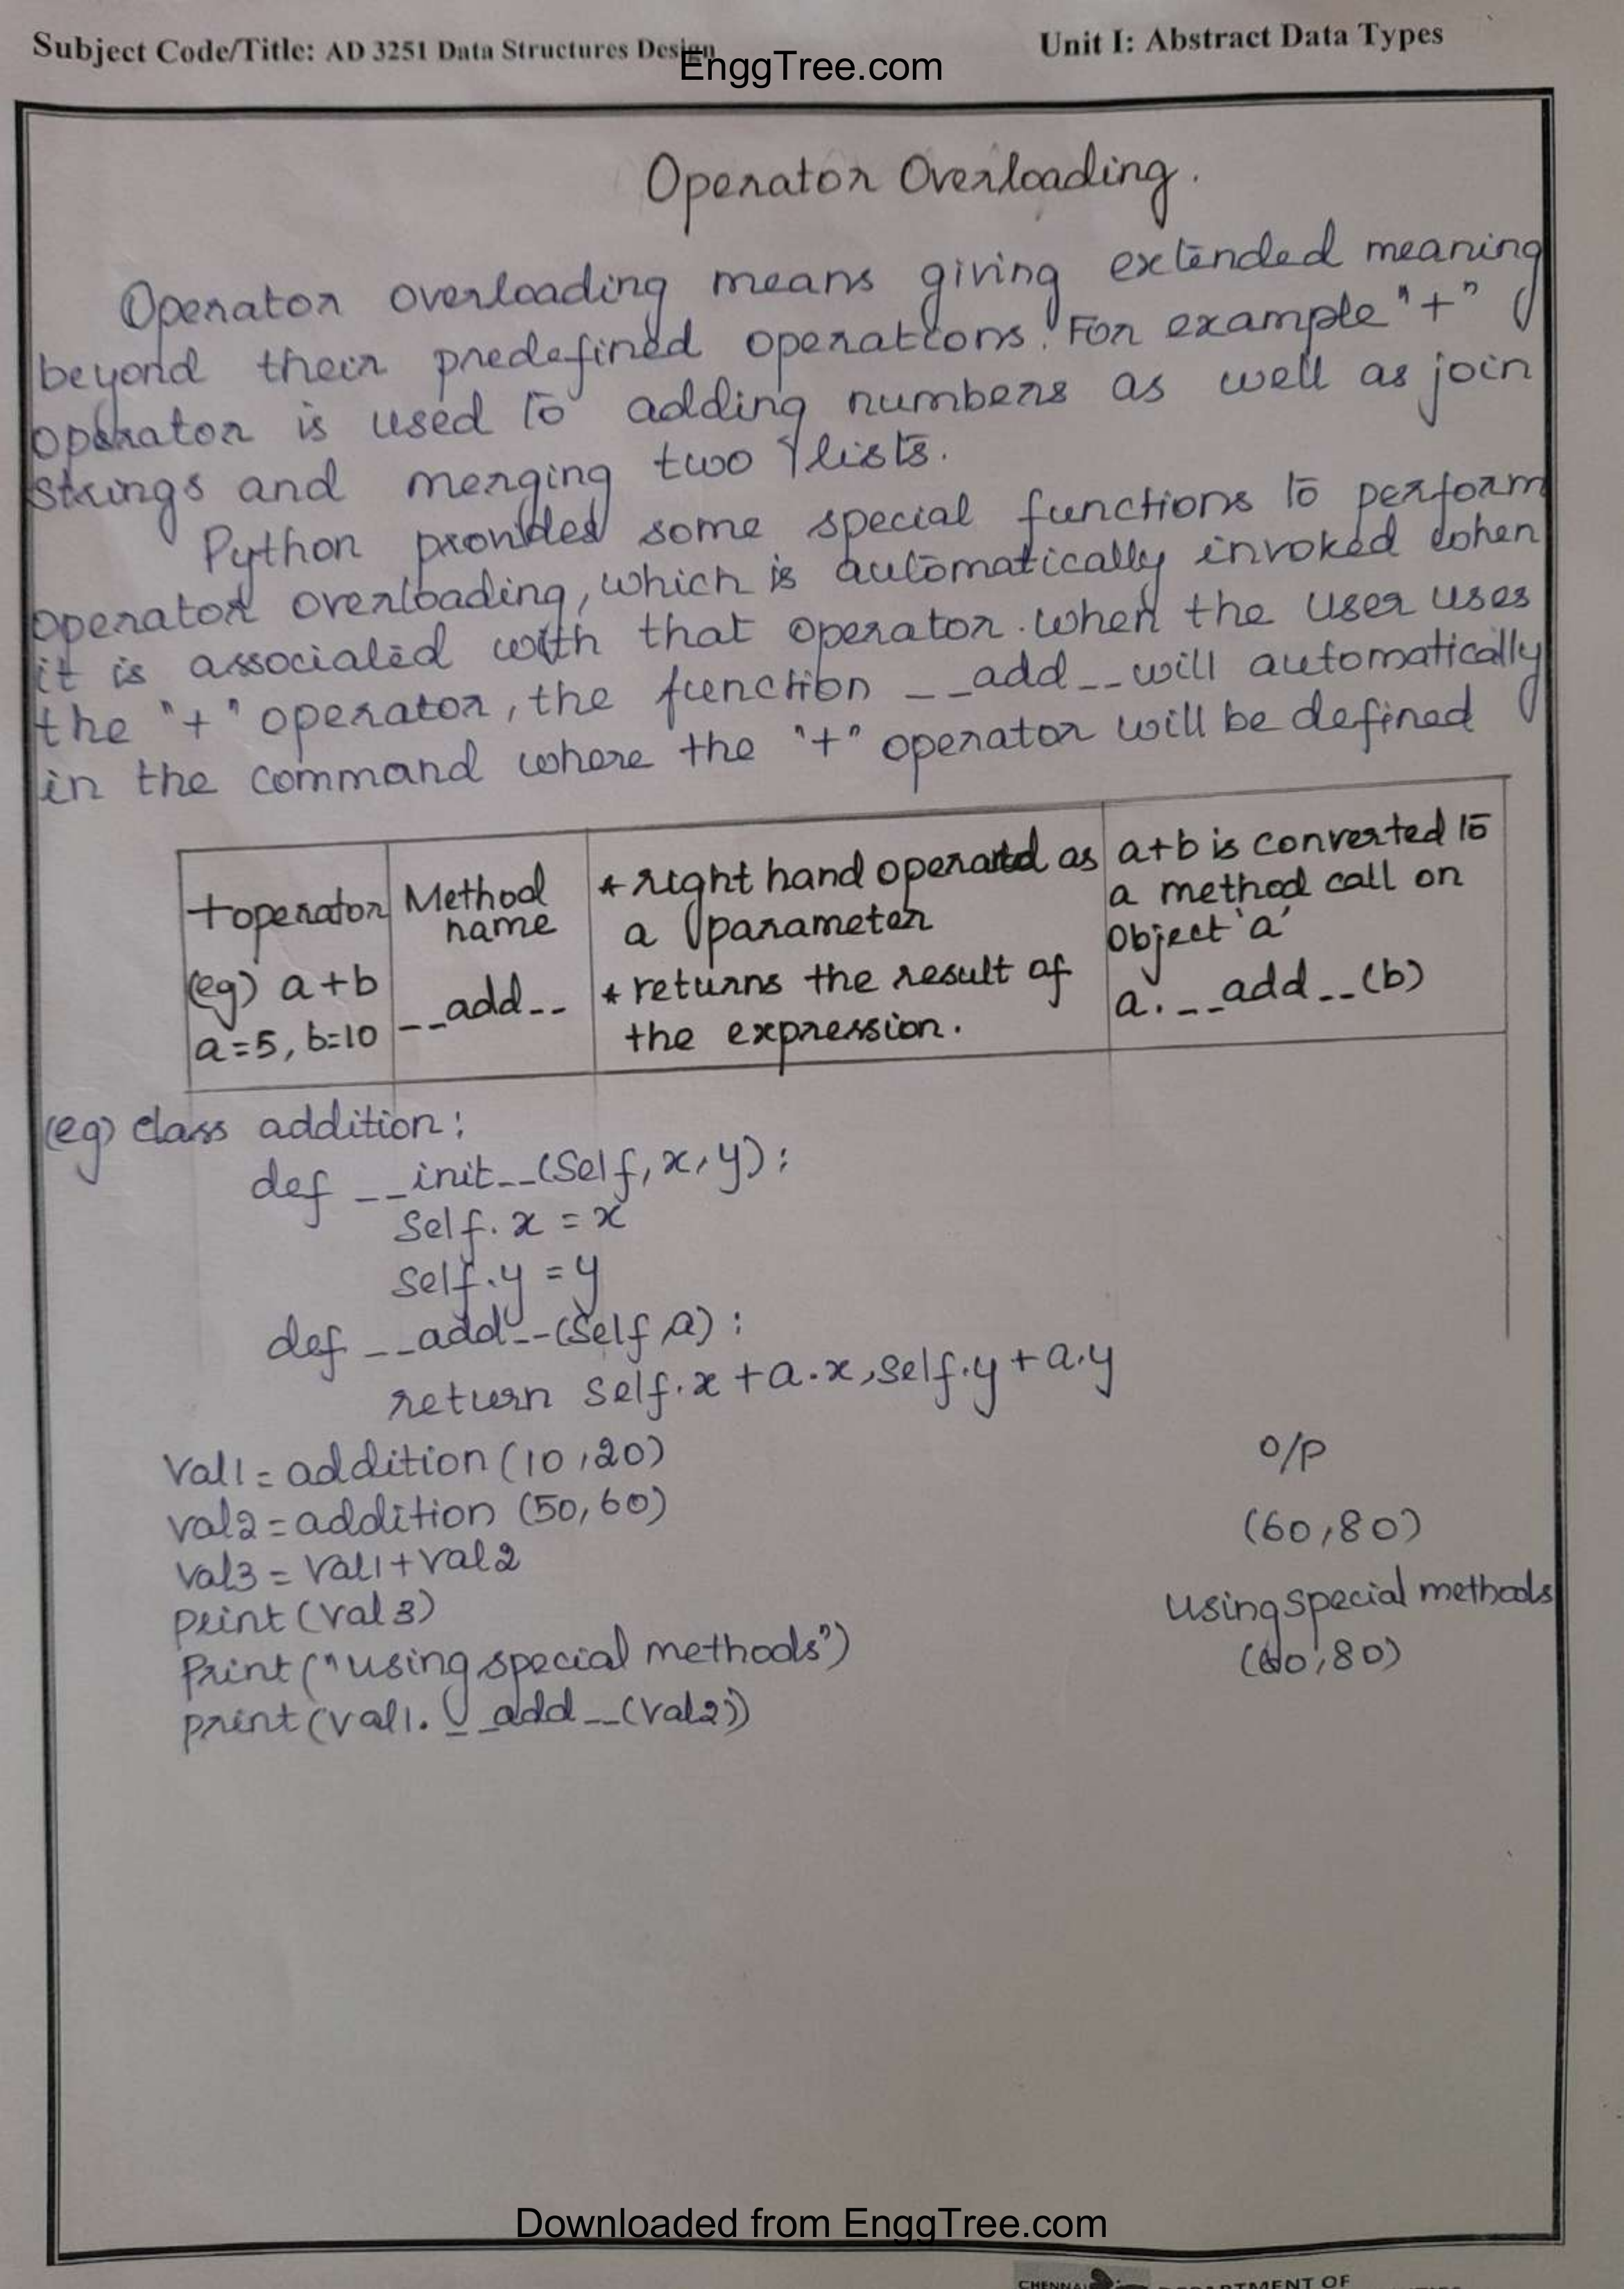 Subject Code/Title: AD 3251 Data Structures Design
Unit I: Abstract Data Types
EnggTree.com
Operator Overloading.
Operator overloading means giving extended meaning
beyond their predefined operations. For example "+"
operator is used to adding numbers as well as join
strings and merging two lists.
Python provided some special functions to perform
operator overloading, which is automatically invoked when
it is associated with that operator. when the user uses
the "+" operator, the function __add__ will automatically
in the command where the "+" operator will be defined
+operator
(eg) a+b
a=5, b=10
Method
name
__add__
* right hand operand as
a parameter
* returns the result of
the expression.
a+b is converted to
a method call on
Object 'a'
a.__add__(b)
(eg) class addition:
def __init__(Self, x, y):
Self. x = x
Self.y = y
def __add__(Self,a):
return Self.x + a.x, Self.y + a.y
Val1 = addition (10,20)
val2 = addition (50,60)
val3 = Val1 + Val2
print (Val 3)
Print ("using special methods")
print (val1.__add__(val2))
O/P
(60,80)
Using special methods
(60,80)
Downloaded from EnggTree.com
CHENNAI
DEPARTMENT OF